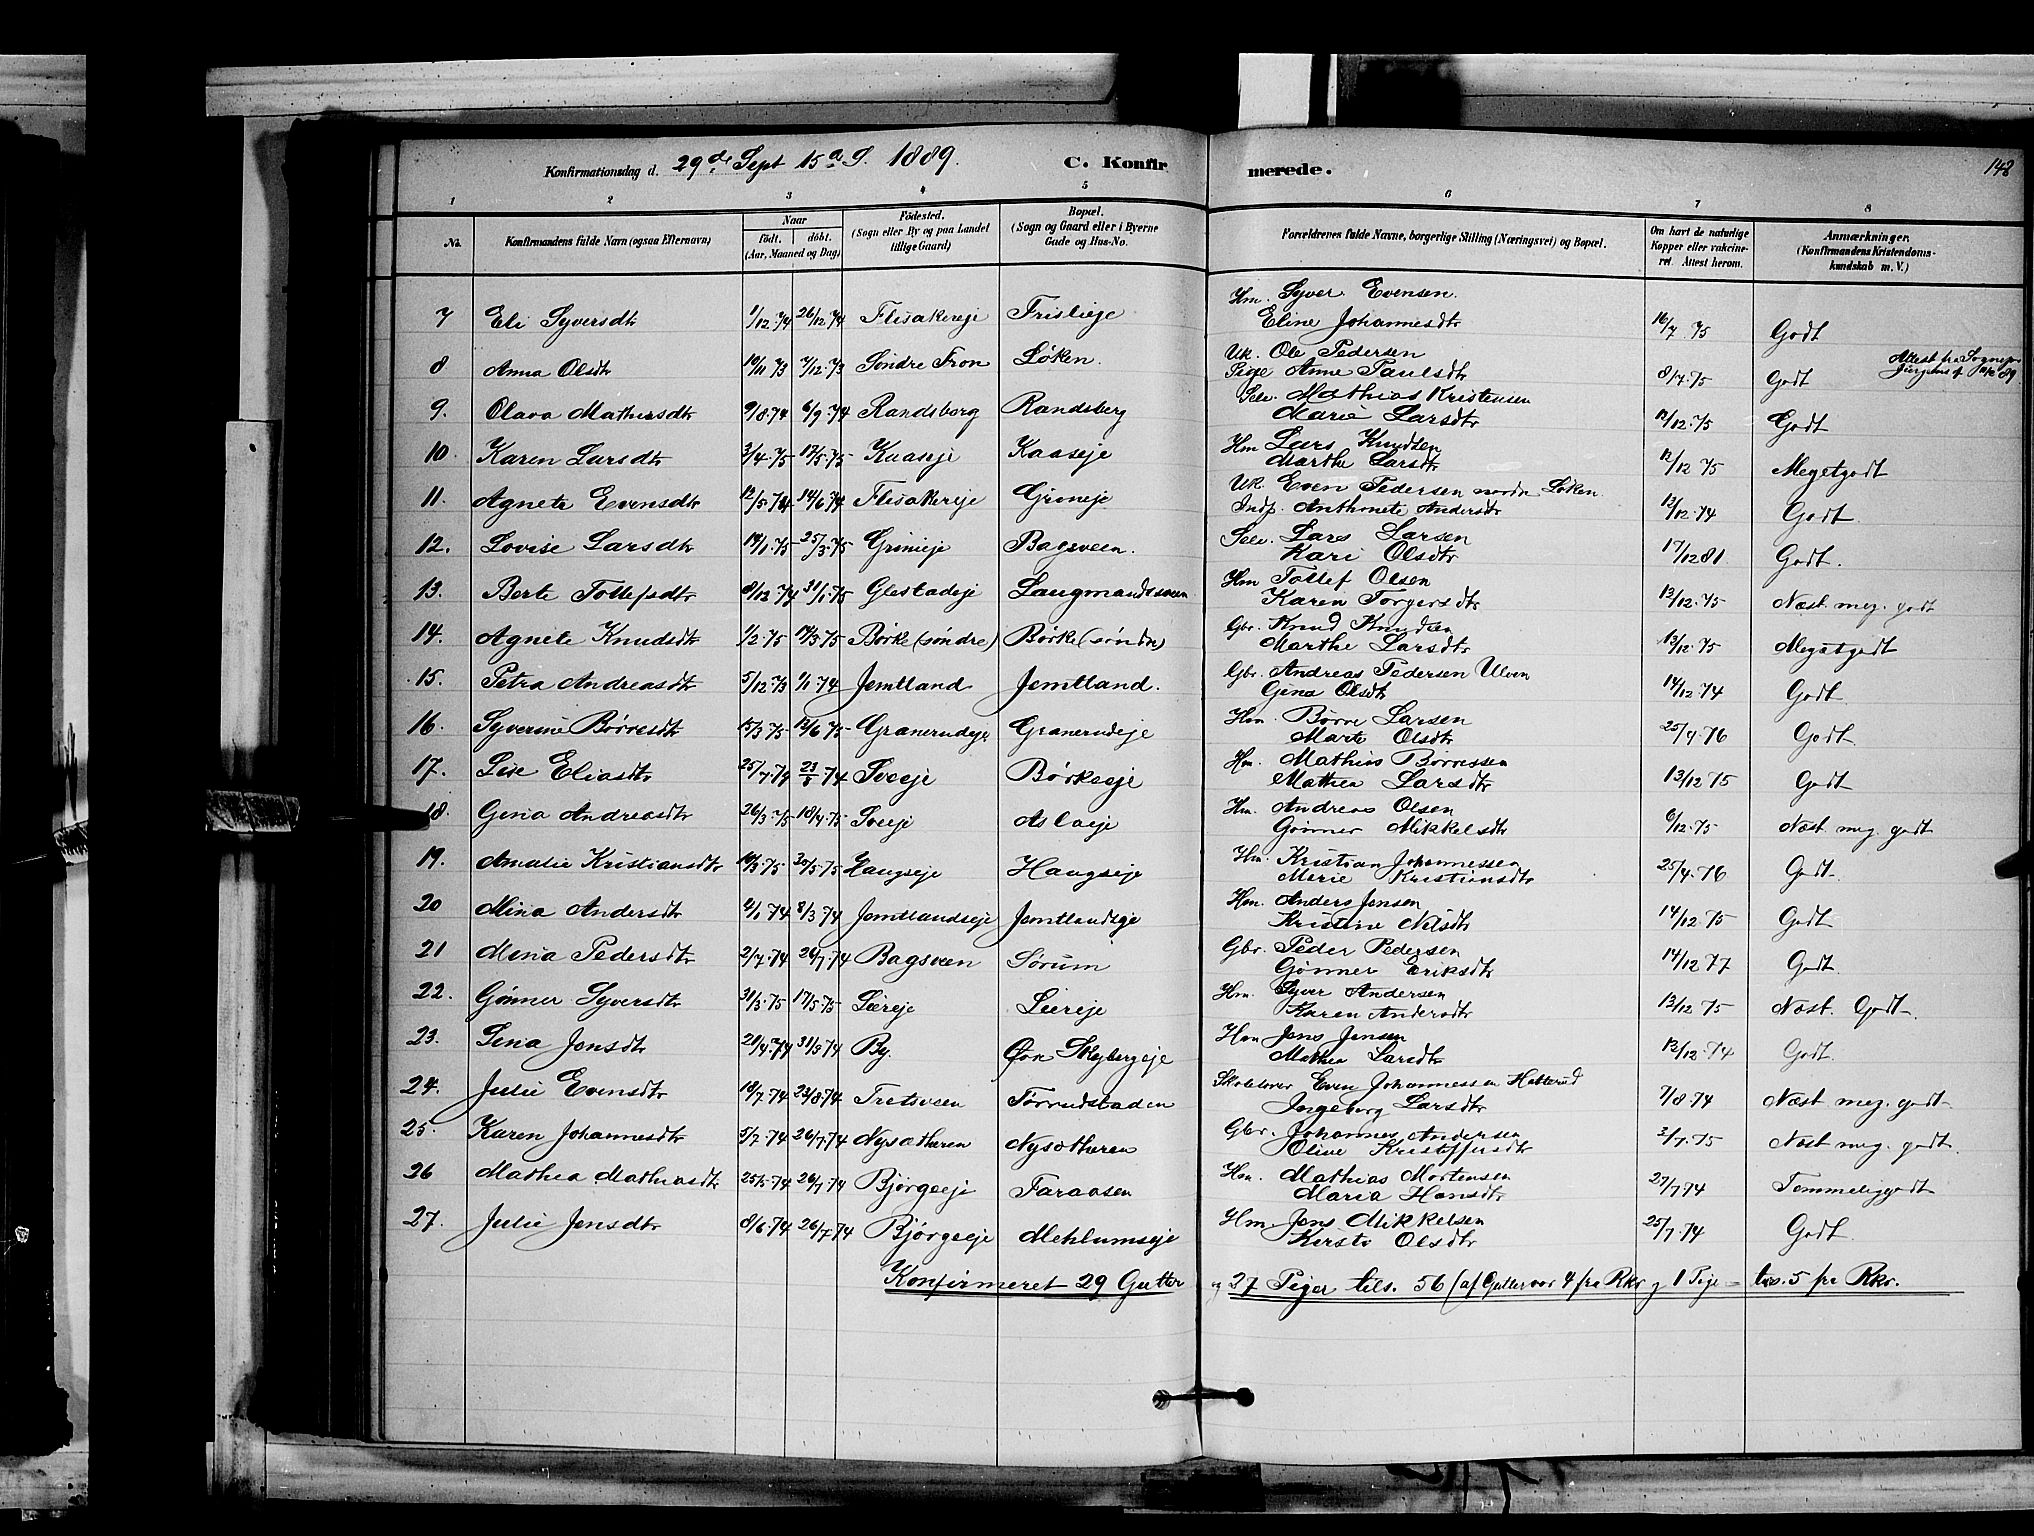 Konfirmationsdag d. 29de Sept 15 S. 1889. C. Konfirmerede. 148
1 2 3 4 5 6 7 8
No. Konfirmandens fulde Navn (ogsaa Efternavn) Naar født. døbt. (Aar, Maaned og Dag) Fødested. (Sogn eller By og paa Landet tillige Gaard) Bopæl. (Sogn og Gaard eller i Byerne Gade og Hus-No. Forældrenes fulde Navne, borgerlige Stilling (Næringsvei) og Bopæl. Om havt de naturlige Kopper eller vakcineret. Attest herom. Anmærkninger. (Konfirmandens Kristendomskundskab m. V.)
Hm. Syver Evensen.
7 Eli Syversdtr 1/12 74 26/12 74 Flisakereje Frislieje Eline Johannesdtr 16/7 75 Godt
Uk. Ole Pedersen
8 Anna Olsdtr 10/11 73 7/12 73 Søndre Fron Løken. Pige Anne Paulsdtr 8/7.75 Godt Attest fra Sognepr
Selv. Mathias Kristensen
9. Olava Mathisdtr 9/8.74 6/9.74 Randsborg Randsberg Marie Larsdtr 12/12.75 Godt
Hm Lars Knudsen
10. Karen Larsdtr 3/4.75 17/5.75 Kaaseje Kaaseje Marthe Larsdtr 12/12 75 Megetgodt
Uk. Even Pedersen nordre Løken.
11. Agnete Evensdtr 12/5.74 14/6 74 Flisakereje Grineje Indp. Anthonete Andersdtr 13/12.74 Godt.
Selv. Lars Larsen
12. Lovise Larsdtr 19/1.75 25/3.75 Grinieje Bagsveen. Kari Olsdtr 17/12 81 Godt.
Hm Tollef Olsen
13. Berte Tollefsdtr 8/12.74 31/1.75 Glestadeje Laugmandssveen Karen Torgersdtr 13/12.75 Næst meg. godt
Gbr. Knud Knudsen
14. Agnete Knudsdtr 1/2.75 14/3.75 Børke (søndre) Børke (søndre) Marthe Larsdtr 13/12.75 Megetgodt
Gbr. Andreas Pedersen Ulven
15. Petra Andreasdtr 5/12.73 1/1.74 Jemtland Jemtland. Gina Olsdtr 14/12 74 Godt
Hm. Børre Larsen
16. Syverine Børresdtr 15/3.75 13/6 75 Granerudeje Granerudeje Marte Olsdtr 25/4.76 Godt.
Hm. Mathias Børressen
17. Lise Eliasdtr 25/7.74 23/8 74 Sveeje Børkeeje Mathea Larsdtr 13/12 75 Godt
Hm. Andreas Olsen
18. Gina Andreasdtr 26/3.75 18/4.75 Sveeje Aslaeje Gønner Mikkelsdtr 6/12.75 Næst meg godt
Hm. Kristian Johannessen
19. Amalie Kristiansdtr 10/3.75 30/5.75 Haugseje Haugseje Merie Kristiansdtr 25/4.76 Godt.
Hm. Anders Jensen
20 Mina Andersdtr 4/1.74 8/3.74 Jemtlandseje Jemtlandseje Kristine Nilsdtr 14/12 75 Godt
Gbr. Peder Pedersen
21 Mina Pedersdtr 2/7.74 26/7.74 Bagsveen Sørum Gønner Eriksdtr 14/12 77 Godt.
Hm. Syver Andersen
22. Gønner Syversdtr 31/3.75 17/5.75 Liereje Liereje Karen Andersdtr 13/12 75 Næst. Godt.
Hm Jens Jensen
23. Lina Jensdtr 21/4.74 31/5 74 By. Øvre Skybergeje Mathea Larsdtr 12/12.74 Godt.
Skolelærer Even Johannessen Hatterud
24. Julie Evensdtr 18/7.74 23/8.74 Tretsveen Tørrudstaden Ingeborg Larsdtr 7/8.74 Næst meg. godt.
Gbr. Johannes Andersen
25. Karen Johannesdtr 5/7.74 26/7.74 Nysætheren Nysætheren Oline Kristoffersdtr 2/7.75 Næst meg. godt.
Hm. Mathias Mortensen
26 Mathea Mathiasdtr 25/5.74 26/7.74 Bjørgeeje Faraasen Maria Hansdtr 27/7 74 Temmeliggodt
Hm. Jens Mikkelsen
27. Julie Jensdtr 8/6.74 26/7.74 Bjørgeeje Mehlumseje Kirsti Olsdtr 25/7.74 Godt.
Konfirmeret 29 Gutter og 27 Piger tils. 56 (af Gutter var 4 fra Rkr og 1 Pige = tils. 5 fra Rkr.